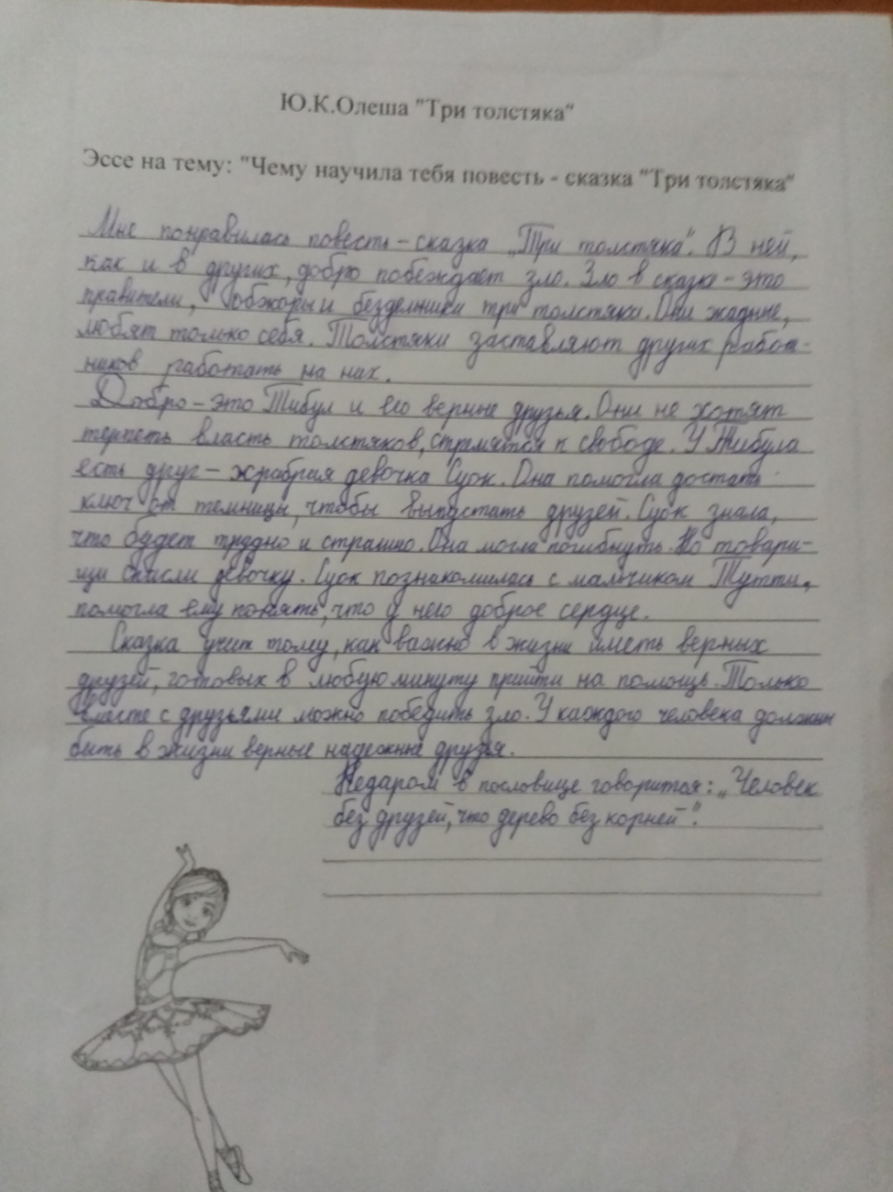 Ю.К.Олеша "Три толстяка"
Эссе на тему: "Чему научила тебя повесть - сказка "Три толстяка"
Мне понравилась повесть – сказка „Три толстяка". В ней,
как и в других, добро побеждает зло. Зло в сказке – это
правители, обжоры и бездельники три толстяка. Они жадные,
любят только себя. Толстяки заставляют других работ-
ников работать на них.
Добро – это Тибул и его верные друзья. Они не хотят
терпеть власть толстяков, стремятся к свободе. У Тибула
есть друг – храбрая девочка Суок. Она помогла достать
ключ от темницы, чтобы выпустать друзей. Суок знала,
что будет трудно и страшно. Она могла погибнуть. Но товари-
щи спасли девочку. Суок познакомилась с мальчиком Тутти,
помогла ему понять, что у него доброе сердце.
Сказка учит тому, как важно в жизни иметь верных
друзей, готовых в любую минуту прийти на помощь. Только
вместе с друзьями можно победить зло. У каждого человека должны
быть в жизни верные надежные друзья.
Недаром в пословице говорится: „Человек
без друзей, что дерево без корней".